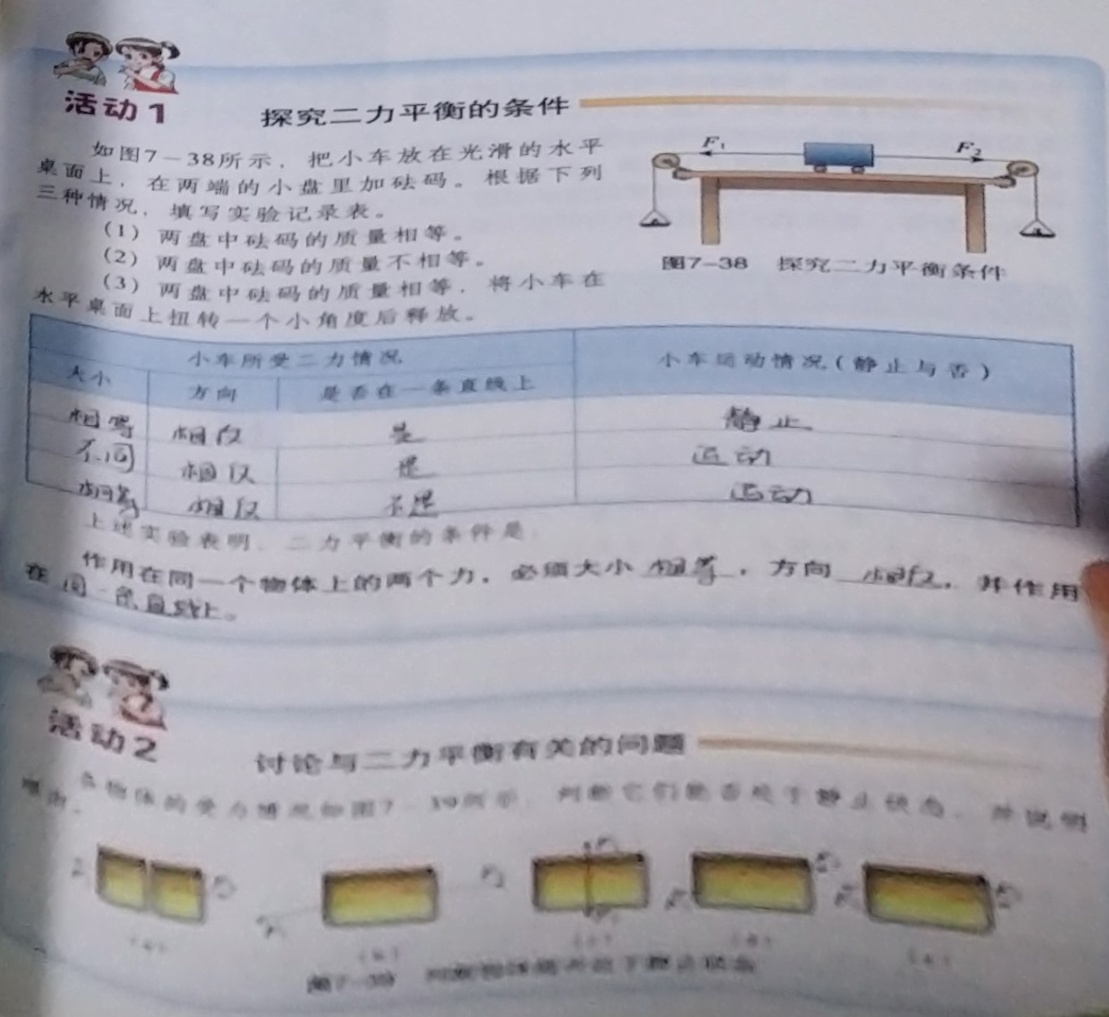 活动1
探究二力平衡的条件
如图7-38所示，把小车放在光滑的水平
桌面上，在两端的小盘里加砝码。根据下列
三种情况，填写实验记录表。
(1) 两盘中砝码的质量相等。
(2) 两盘中砝码的质量不相等。
(3) 两盘中砝码的质量相等，将小车在
水平桌面上扭转一个小角度后释放。
F₁ F₂
图7-38 探究二力平衡条件
小车所受二力情况 小车运动情况(静止与否)
大小 方向 是否在一条直线上
相等 相反 是 静止
不同 相反 是 运动
相等 相反 不是 运动
上述实验表明，二力平衡的条件是
作用在同一个物体上的两个力，必须大小相等，方向相反，并作用
在同一条直线上。
活动2
讨论与二力平衡有关的问题
各物体的受力情况如图7-39所示，判断它们能否处于静止状态，并说明
理由。
图7-39 判断物体能否处于静止状态